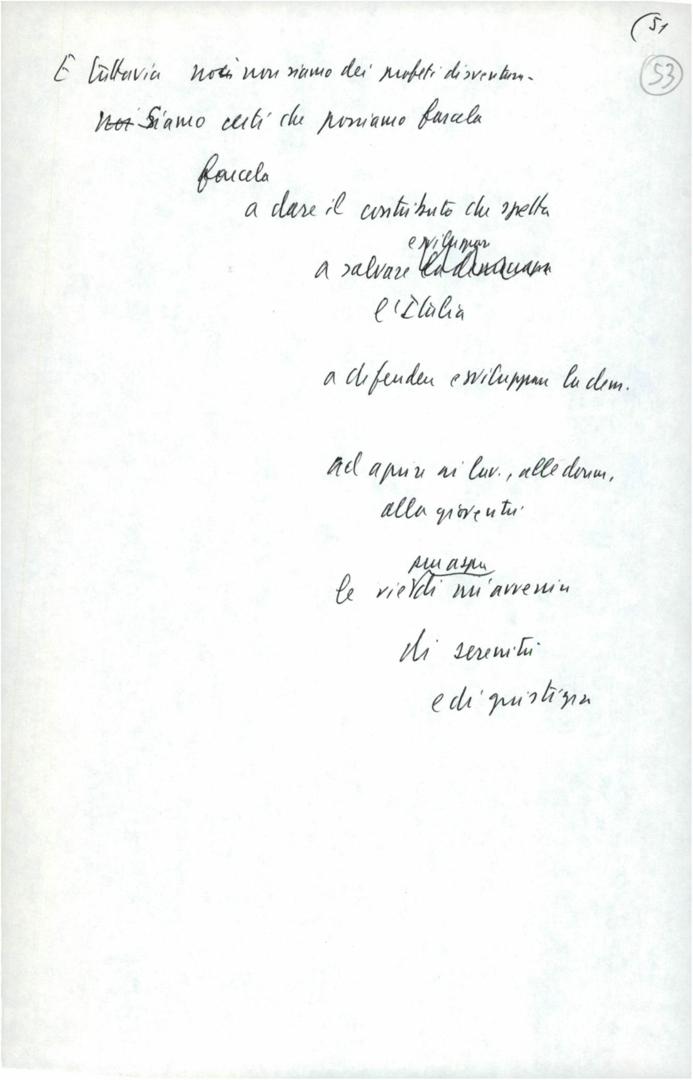 (51
53
E tuttavia noi non siamo dei profeti di sventura.
noi Siamo certi che possiamo farcela
farcela
a dare il contributo che spetta
e sviluppar
a salvare
l'Italia
a difendere e sviluppare la dem.
ad aprire ai lav., alle donne,
alla gioventù
le vie di un'avvenire
di serenità
e di giustizia